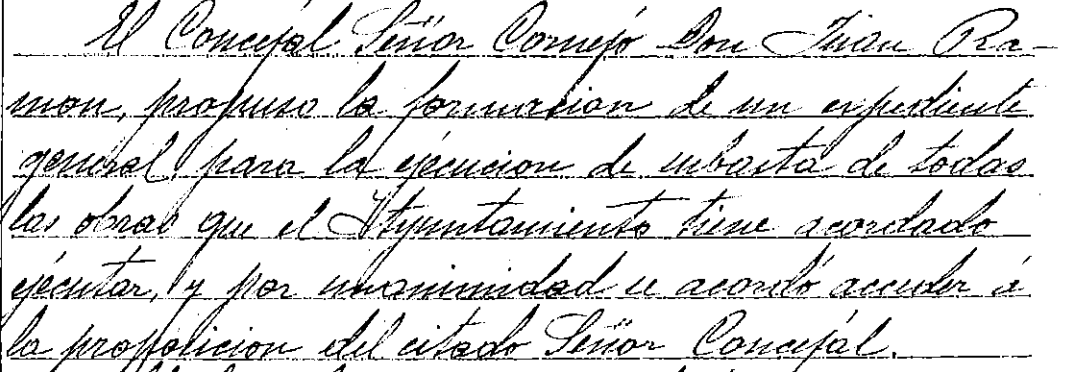 El Concejal Señor Cornejo Don Juan Ra-
mon, propuso la formacion de un expediente
general para la ejecucion de subasta de todas
las obras que el Ayuntamiento tiene acordado
ejecutar, y por unanimidad se acordó acceder á
la proposicion del citado Señor Concejal.